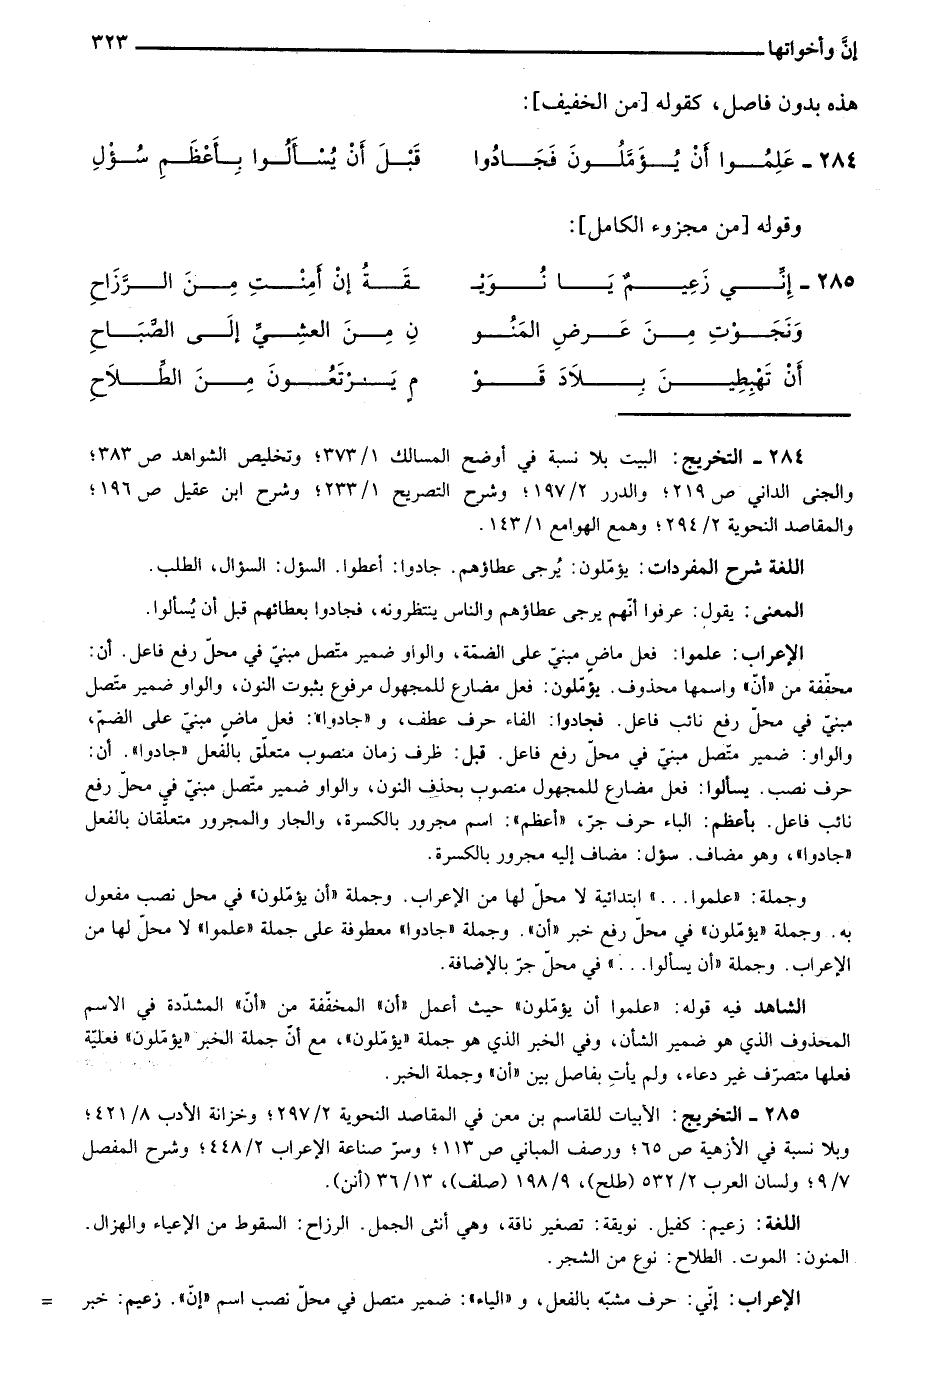 إنَّ وأخواتها ٣٢٣
هذه بدون فاصل، كقوله [من الخفيف]:
٢٨٤ ـ عَلِمُــوا أَنْ يُــؤَمَّلُــونَ فَجَــادُوا قَبْــلَ أَنْ يُسْــأَلُــوا بِــأَعْظَــمِ سُــؤْلِ
وقوله [من مجزوء الكامل]:
٢٨٥ ـ إِنَّــي زَعِيــمٌ يَــا نُــوَيْـ ـقَــةُ إنْ أَمِنْــتِ مِــنَ الــرَّزَاحِ
وَنَجَــوْتِ مِــنَ عَــرضِ المَنُــو نِ مِــنَ العَشِيِّ إلَــى الصَّبَــاحِ
أَنْ تَهْبِطِيــنَ بِــلَادَ قَــوْ مٍ يَــرْتَعُــونَ مِــنَ الطِّــلَاحِ
٢٨٤ ـ التخريج: البيت بلا نسبة في أوضح المسالك ١/٣٧٣؛ وتخليص الشواهد ص٣٨٣؛
والجنى الداني ص٢١٩؛ والدرر ٢/١٩٧؛ وشرح التصريح ١/٢٣٣؛ وشرح ابن عقيل ص١٩٦؛
والمقاصد النحوية ٢/٢٩٤؛ وهمع الهوامع ١/١٤٣.
اللغة شرح المفردات: يؤمّلون: يُرجى عطاؤهم. جادوا: أعطوا. السؤل: السؤال، الطلب.
المعنى: يقول: عرفوا أنّهم يرجى عطاؤهم والناس ينتظرونه، فجادوا بعطائهم قبل أن يُسألوا.
الإعراب: علموا: فعل ماضٍ مبنيّ على الضمّة، والواو ضمير متّصل مبنيّ في محلّ رفع فاعل. أن:
مخفّفة من «أنّ» واسمها محذوف. يؤمّلون: فعل مضارع للمجهول مرفوع بثبوت النون، والواو ضمير متّصل
مبنيّ في محلّ رفع نائب فاعل. فجادوا: الفاء حرف عطف، و «جادوا»: فعل ماضٍ مبنيّ على الضمّ،
والواو: ضمير متّصل مبنيّ في محلّ رفع فاعل. قبل: ظرف زمان منصوب متعلّق بالفعل «جادوا». أن:
حرف نصب. يسألوا: فعل مضارع للمجهول منصوب بحذف النون، والواو ضمير متّصل مبنيّ في محلّ رفع
نائب فاعل. بأعظم: الباء حرف جرّ، «أعظم»: اسم مجرور بالكسرة، والجار والمجرور متعلّقان بالفعل
«جادوا»، وهو مضاف. سؤل: مضاف إليه مجرور بالكسرة.
وجملة: «علموا...» ابتدائية لا محلّ لها من الإعراب. وجملة «أن يؤمّلون» في محل نصب مفعول
به. وجملة «يؤمّلون» في محلّ رفع خبر «أن». وجملة «جادوا» معطوفة على جملة «علموا» لا محلّ لها من
الإعراب. وجملة «أن يسألوا...» في محلّ جرّ بالإضافة.
الشاهد فيه قوله: «علموا أن يؤمّلون» حيث أعمل «أن» المخفّفة من «أنّ» المشدّدة في الاسم
المحذوف الذي هو ضمير الشأن، وفي الخبر الذي هو جملة «يؤمّلون»، مع أنّ جملة الخبر «يؤمّلون» فعليّة
فعلها متصرّف غير دعاء، ولم يأتِ بفاصل بين «أن» وجملة الخبر.
٢٨٥ ـ التخريج: الأبيات للقاسم بن معن في المقاصد النحوية ٢/٢٩٧؛ وخزانة الأدب ٨/٤٢١؛
وبلا نسبة في الأزهية ص٦٥؛ ورصف المباني ص١١٣؛ وسرّ صناعة الإعراب ٢/٤٤٨؛ وشرح المفصل
٧/٩؛ ولسان العرب ٢/٥٣٢ (طلح)، ٩/١٩٨ (صلف)، ١٣/٣٦ (أنن).
اللغة: زعيم: كفيل. نويقة: تصغير ناقة، وهي أنثى الجمل. الرزاح: السقوط من الإعياء والهزال.
المنون: الموت. الطلاح: نوع من الشجر.
الإعراب: إنّي: حرف مشبّه بالفعل، و «الياء»: ضمير متصل في محلّ نصب اسم «إنّ». زعيم: خبر =